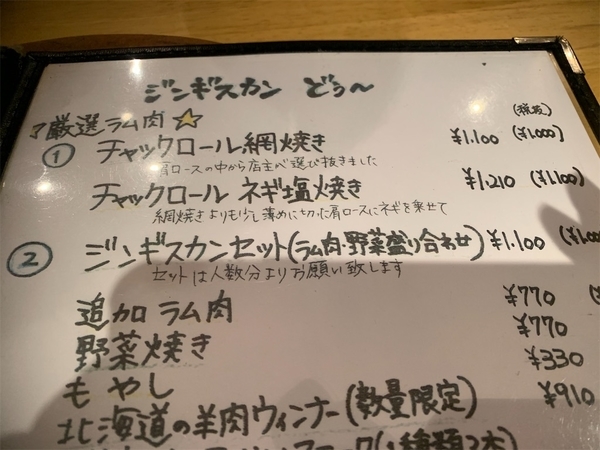 ジンギスカン どぅ〜
厳選ラム肉☆ (税抜)
① チャックロール網焼き ¥1.100 (¥1.000)
肩ロースの中から店主が選び抜きました
チャックロール ネギ塩焼き ¥1.210 (¥1.100)
網焼きよりも少し薄めに切った肩ロースにネギを乗せて
② ジンギスカンセット(ラム肉・野菜盛り合わせ) ¥1.100
セットは人数分よりお願い致します
追加 ラム肉 ¥770
野菜焼き ¥770
もやし ¥330
北海道の羊肉ウィンナー(数量限定) ¥910